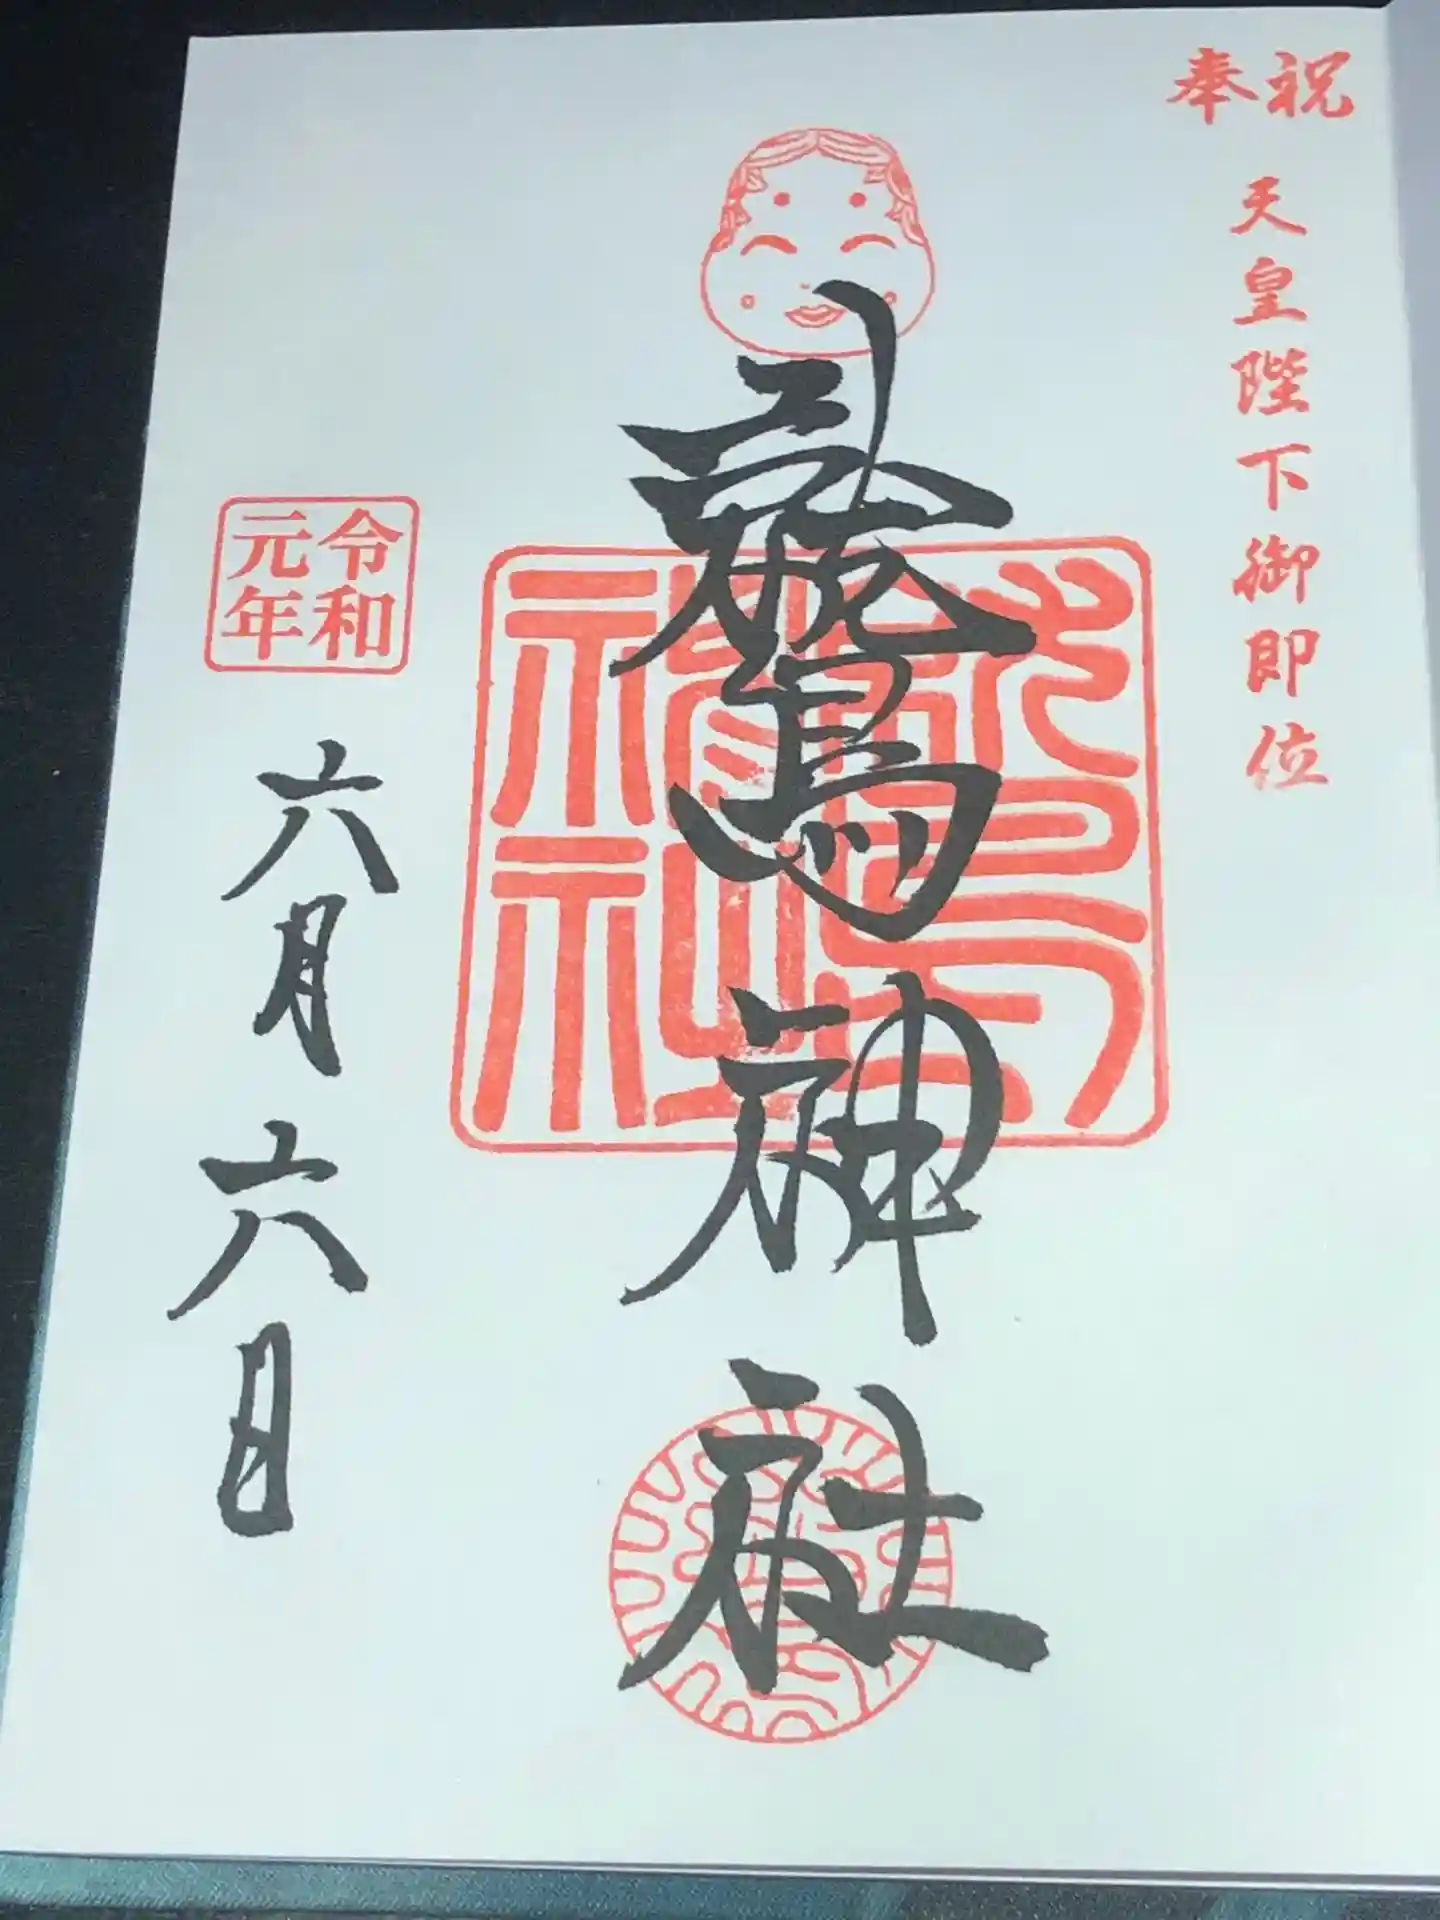 奉祝
天皇陛下御即位
鷲神社
鷲神社
令和元年
六月六日